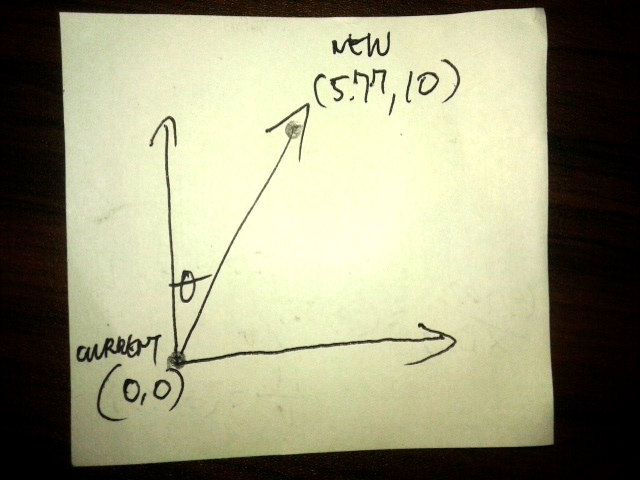 NEW
(5.77,10)
θ
CURRENT
(0,0)